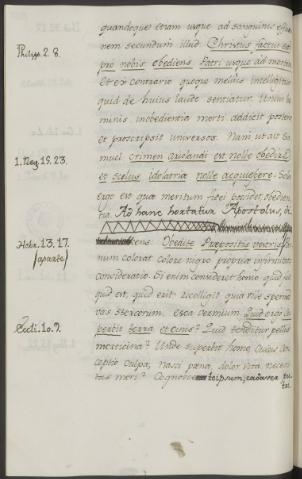 quandoque etiam usque ad sanguinis effusio
nem secundum illud. Christus factus est
Philipp. 2. 8.
pro nobis obediens Patri usque ad mortem
Et ex contrario quoque melius intelligitur
quid de huius laude sentiatur. Unius ho
minis inobedientia morti addicit posteros
et proscripsit universos. Nam ut ait Sa
muel crimen ariolandi est nolle obedire
1. Reg. 15. 23.
et scelus idolatriae nolle acquiescere. Sola
ergo est quae meritum fidei possidet, obedien
tia. Ad hanc hortatur Apostolus, di
cens. Obedite Praepositis vestris
Hebr. 13. 17.
num colorat colore nigro propriae infirmitatis
consideratio. Si enim consideret homo quid sit
quid est, quid erit
vas stercorum, esca vermium. Quid ergo su
Eccli. 10. 9.
perbit terra et cinis? Quid tenditur pellis
morticina? Unde superbit homo, cuius con
ceptio culpa, nasci poena, dolor vita, neces
tas mori? Cognosce teipsum,